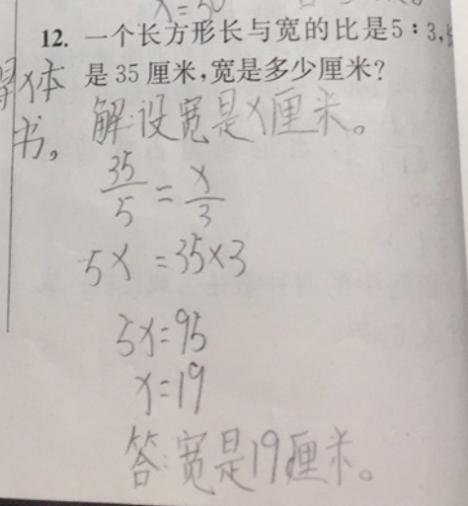 12. 一个长方形长与宽的比是5∶3,长
是 35 厘米,宽是多少厘米?
x本
书。
解:设宽是x厘米。
35/5 = x/3
5x = 35×3
5x=95
x=19
答:宽是19厘米。